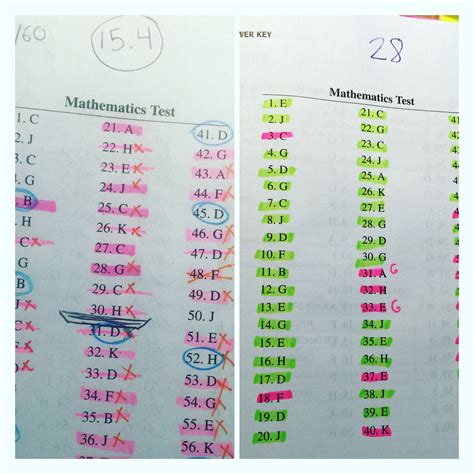 /60
15.4
Mathematics Test
. C
. J
. C
. G
. B
. H
C
. G
B
21. A
22. H
23. E
24. J
25. C
26. K
27. C
28. G
29. C
30. H
31. D
32. K
33. D
34. F
35. B
36. J
41. D
42. G
43. A
44. F
45. D
46. G
47. D
48. F
49. D
50. J
51. E
52. H
53. D
54. G
55. E
56. K
VER KEY
28
Mathematics Test
1. E
2. J
3. C
4. G
5. D
6. G
7. C
8. J
9. D
10. G
11. B
12. G
13. E
14. G
15. E
16. H
17. D
18. F
19. D
20. J
21. C
22. G
23. C
24. J
25. A
26. K
27. E
28. G
29. D
30. G
31. A G
32. H
33. E G
34. J
35. E
36. H
37. E
38. J
39. E
40. K
41
42